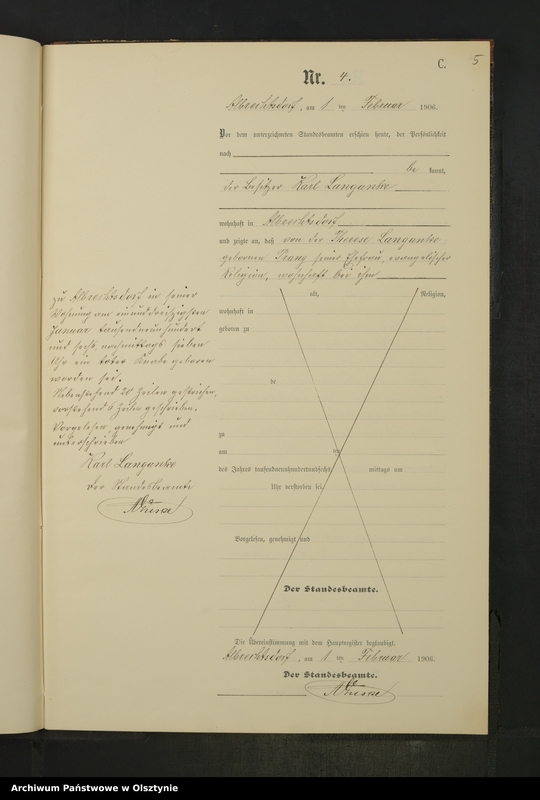 C.
5
Nr. 4.
Albrechtsdorf, am 1 ten Februar 1906.
Vor dem unterzeichneten Standesbeamten erschien heute, der Persönlichkeit
nach
be kannt,
der Besitzer Karl Langanke
wohnhaft in Albrechtsdorf
und zeigte an, daß von der Therese Langanke
geborenen Prang seiner Ehefrau, evangelischer
Religion, wohnhaft bei ihm
alt, Religion,
wohnhaft in
geboren zu
zu Albrechtsdorf in seiner
Wohnung am einunddreißigsten
Januar tausendneunhundert
und sechs, nachmittags sieben
Uhr ein toter Knabe geboren
worden sei.
Nebenstehend 20 Zeilen gestrichen,
vorstehend 6 Zeilen geschrieben.
Vorgelesen, genehmigt und
unterschrieben
Karl Langanke
Der Standesbeamte
de
zu
am ten
des Jahres tausendneunhundertundsechs mittags um
Uhr verstorben sei.
Vorgelesen, genehmigt und
Der Standesbeamte.
Die Übereinstimmung mit dem Hauptregister beglaubigt.
Albrechtsdorf, am 1 ten Februar 1906.
Der Standesbeamte.
Archiwum Państwowe w Olsztynie